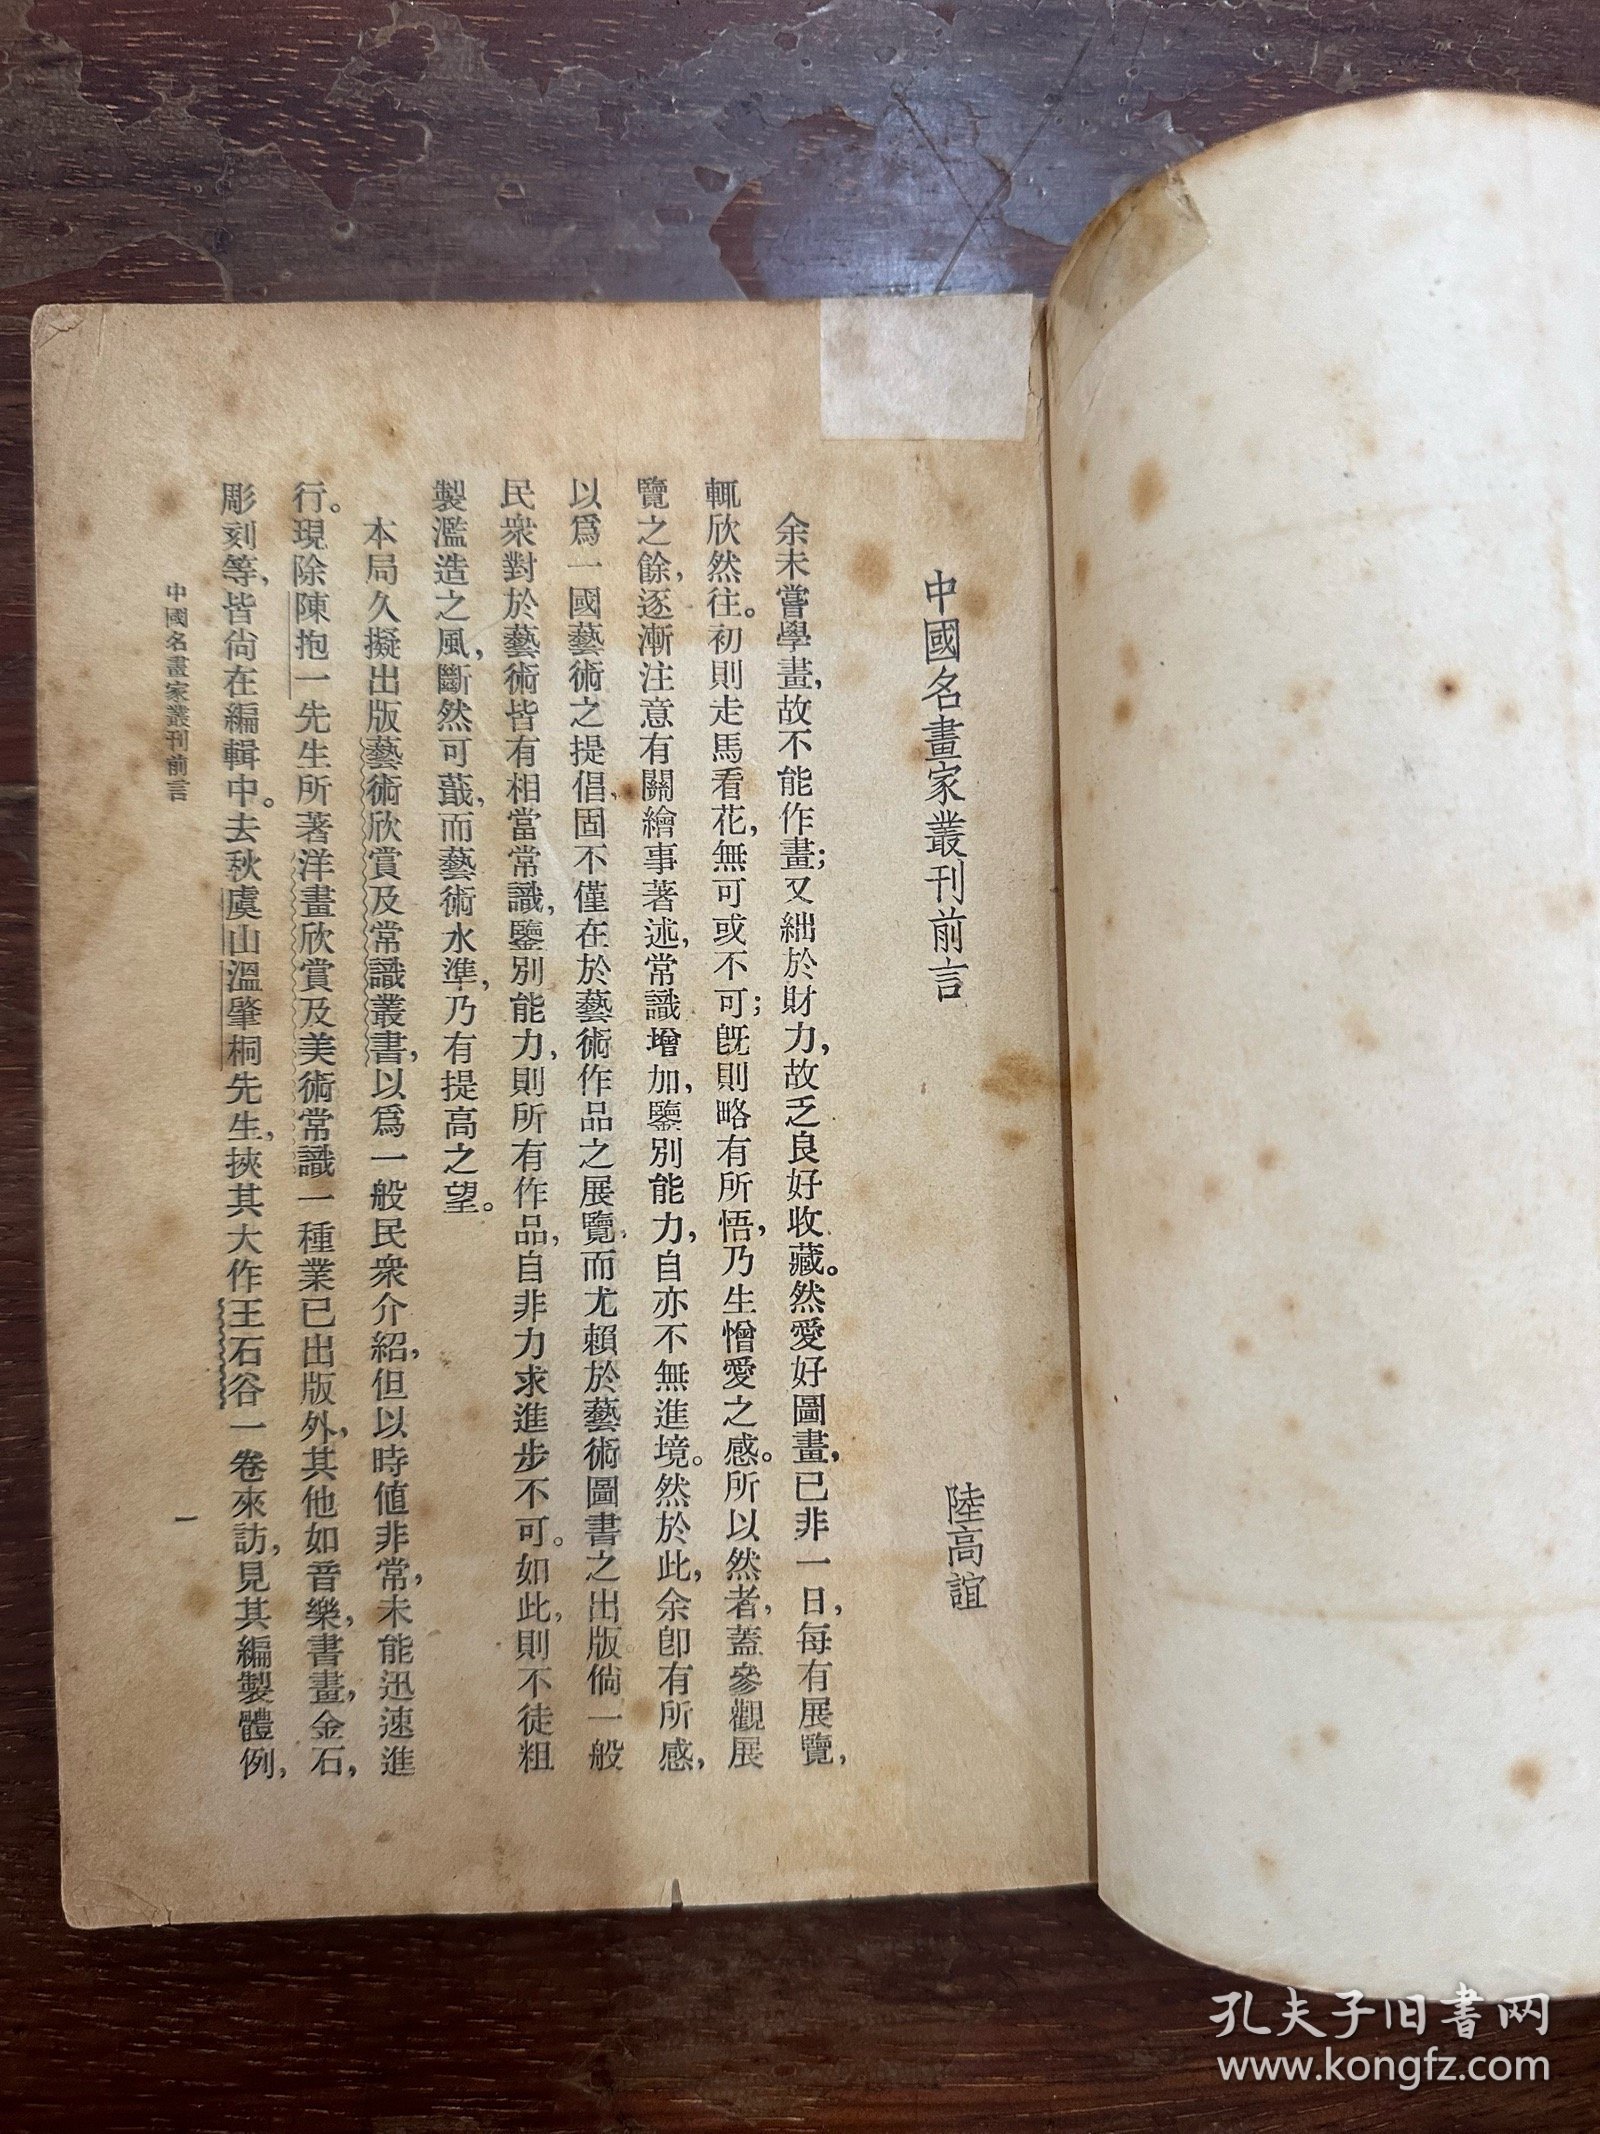 中國名畫家叢刊前言
陸高誼
余未嘗學畫，故不能作畫；又絀於財力，故乏良好收藏。然愛好圖畫，已非一日，每有展覽，
輒欣然往。初則走馬看花，無可或不可；旣則略有所悟，乃生憎愛之感。所以然者，蓋參觀展
覽之餘，逐漸注意有關繪事著述，常識增加，鑒別能力，自亦不無進境。然於此，余卽有所感，
以爲一國藝術之提倡，固不僅在於藝術作品之展覽，而尤賴於藝術圖書之出版。倘一般
民衆對於藝術皆有相當常識，鑒別能力，則所有作品，自非力求進步不可。如此，則不徒粗
製濫造之風，斷然可戢，而藝術水準，乃有提高之望。
本局久擬出版藝術欣賞及常識叢書，以爲一般民衆介紹，但以時値非常，未能迅速進
行。現除陳抱一先生所著洋畫欣賞及美術常識一種業已出版外，其他如音樂，書畫，金石，
彫刻等，皆尙在編輯中。去秋虞山溫肇桐先生，挾其大作王石谷一卷來訪，見其編製體例，
中國名畫家叢刊前言
一
孔夫子旧书网
www.kongfz.com